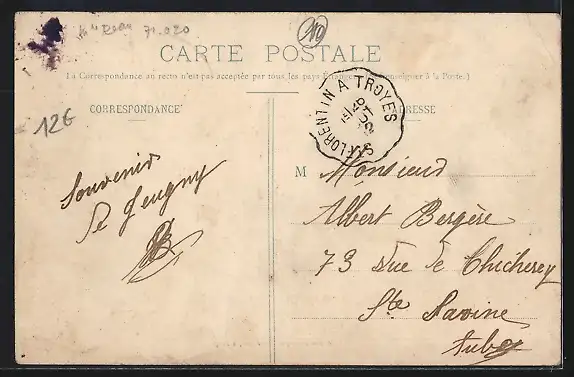 CARTE POSTALE
(La Correspondance au recto n'est pas acceptée par tous les pays Étrangers. (Se renseigner à la Poste.)
CORRESPONDANCE
ADRESSE
12€
Sr FLORENTIN A TROYES
Souvenir
de Jeugny
M Monsieur
Albert Bergère
73 Rue de Chicherey
Ste Savine
Aube